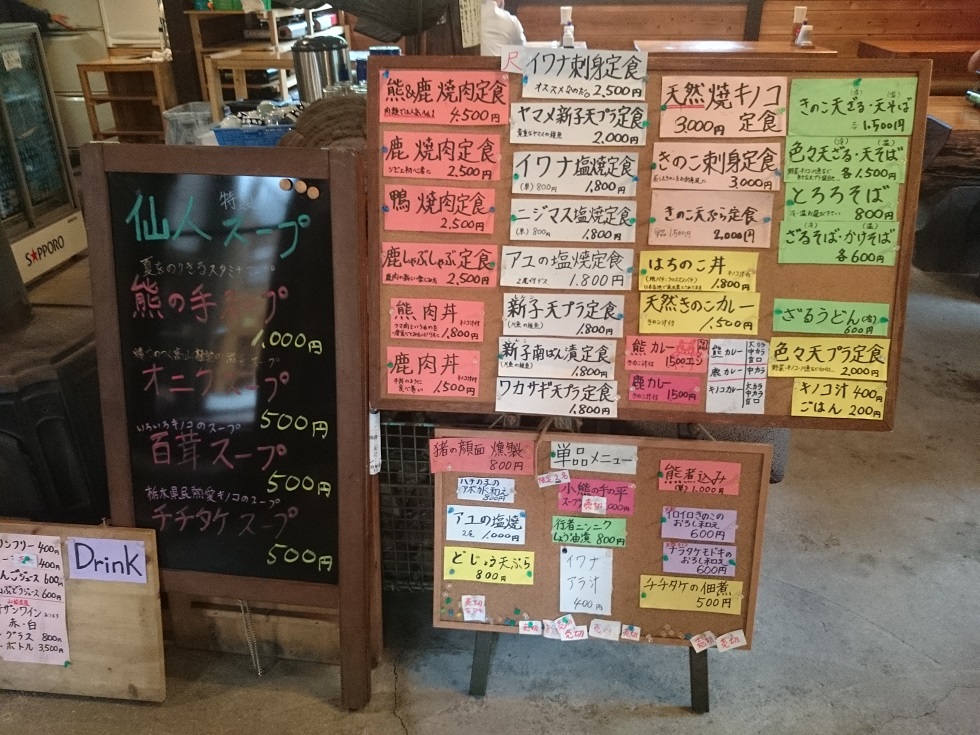 SAPPORO
特製
仙人スープ
熊の手スープ
1,000円
オニクスープ
500円
いろいろキノコのスープ
百茸スープ
500円
栃木県民熱愛キノコのスープ
チチタケスープ
500円
Drink
400円
400円
600円
600円
赤・白
グラス 800円
ボトル 3,500円
熊&鹿焼肉定食
4,500円
鹿焼肉定食
2,500円
鴨焼肉定食
2,500円
鹿しゃぶしゃぶ定食
2,500円
熊肉丼
1,800円
鹿肉丼
1,500円
尺イワナ刺身定食
2,500円
ヤマメ新子天プラ定食
2,000円
イワナ塩焼定食
(単)800円 1,800円
ニジマス塩焼定食
(単)800円 1,800円
アユの塩焼定食
1,800円
新子天プラ定食
1,800円
新子南ばん漬定食
1,800円
ワカサギ天プラ定食
1,800円
天然焼キノコ
3,000円 定食
きのこ刺身定食
3,000円
きのこ天ぷら定食
2,000円
はちのこ丼
1,800円
天然きのこカレー
1,500円
熊カレー
1500円
鹿カレー
1500円
熊カレー 大カラ 中カラ 甘口
鹿カレー 中カラ
キノコカレー 大カラ 中カラ 甘口
きのこ天ざる・天そば
1,500円
色々天ざる・天そば
各1,500円
とろろそば
800円
ざるそば・かけそば
各600円
ざるうどん(冷)
600円
色々天プラ定食
2,000円
キノコ汁 400円
ごはん 200円
猪の顔面燻製
800円
単品メニュー
ハチの子の
アボカド和え
800円
アユの塩焼
1,000円
どじょう天ぷら
800円
小熊の手の平
スープ 売切
行者ニンニク
しょう油漬 800円
イワナ
アラ汁
400円
熊煮込み
1,000円
イロイロきのこの
おろし和え
600円
ナラタケモドキの
おろし和え
600円
チチタケの佃煮
500円
売切
売切
売切
売切
売切